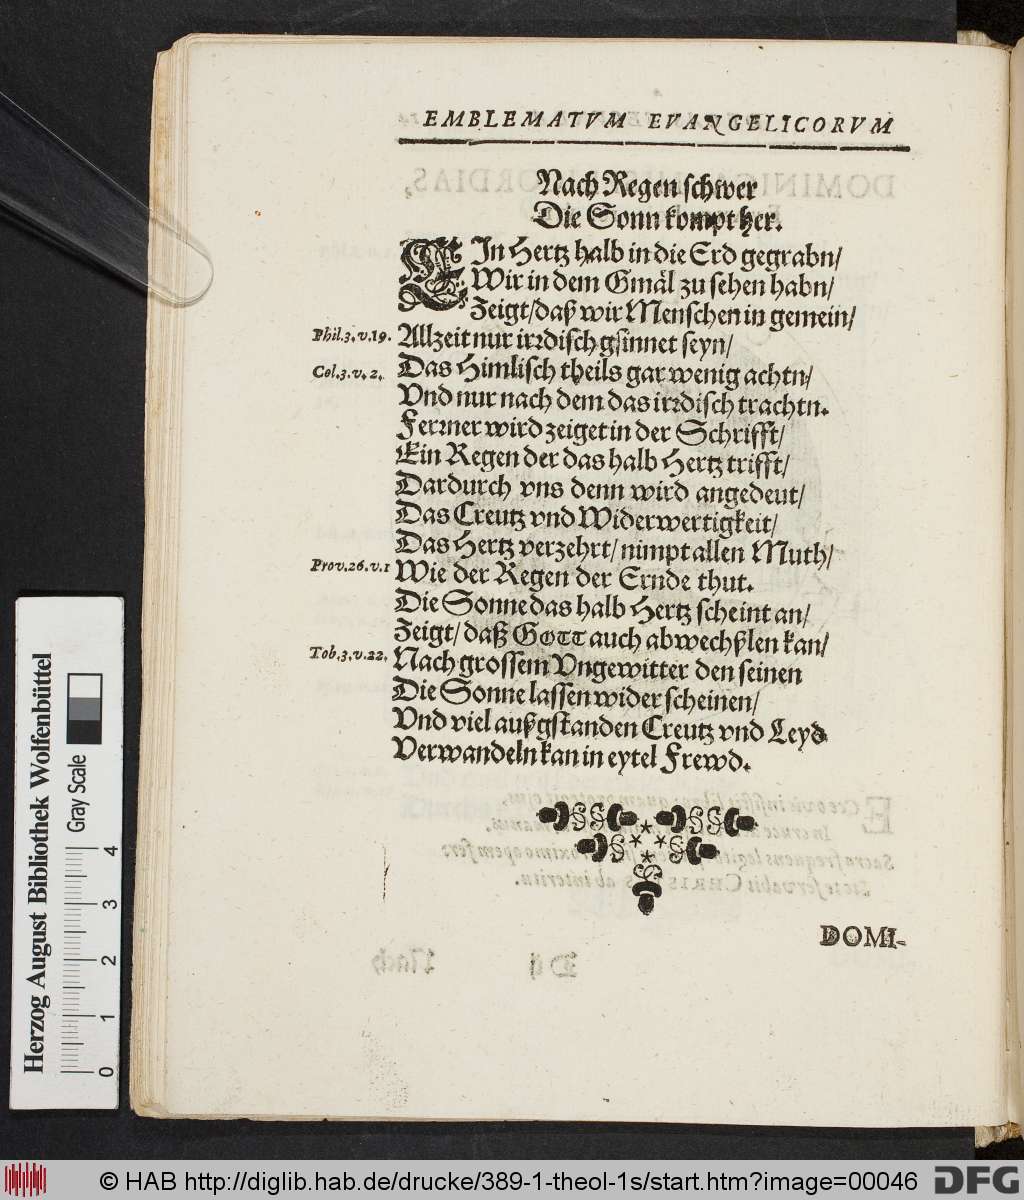 EMBLEMATVM EVANGELICORVM
Nach Regen schwer
Die Sonn kompt her.
EIn Hertz halb in die Erd gegrabn/
Wir in dem Gmäl zu sehen habn/
Zeigt/ daß wir Menschen in gemein/
Phil.3.v.19. Allzeit nur irrdisch gsinnet seyn/
Col.3.v.2. Das Himlisch theils gar wenig achtn/
Vnd nur nach dem das irrdisch trachtn.
Ferrner wird zeiget in der Schrifft/
Ein Regen der das halb Hertz trifft/
Dardurch vns denn wird angedeut/
Das Creutz vnd Widerwertigkeit/
Das Hertz verzehrt/ nimpt allen Muth/
Prov.26.v.1 Wie der Regen der Ernde thut.
Die Sonne das halb Hertz scheint an/
Zeigt/ daß GOTT auch abwechßlen kan/
Tob.3.v.22. Nach grossem Vngewitter den seinen
Die Sonne lassen wider scheinen/
Vnd viel außgstanden Creutz vnd Leyd
Verwandeln kan in eytel Frewd.
DOMI-
Herzog August Bibliothek Wolfenbüttel
Gray Scale
0 1 2 3 4
© HAB http://diglib.hab.de/drucke/389-1-theol-1s/start.htm?image=00046
DFG